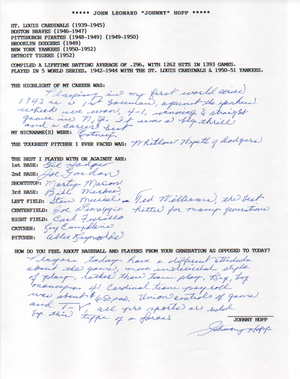 ***** JOHN LEONARD "JOHNNY" HOPP *****
ST. LOUIS CARDINALS (1939-1945)
BOSTON BRAVES (1946-1947)
PITTSBURGH PIRATES (1948-1949) (1949-1950)
BROOKLYN DODGERS (1949)
NEW YORK YANKEES (1950-1952)
DETROIT TIGERS (1952)
COMPILED A LIFETIME BATTING AVERAGE OF .296, WITH 1262 HITS IN 1393 GAMES.
PLAYED IN 5 WORLD SERIES, 1942-1944 WITH THE ST. LOUIS CARDINALS & 1950-51 YANKEES.
THE HIGHLIGHT OF MY CAREER WAS:
Playing in my first world series
1942 as a 1st baseman, against the yankees
which we won, 4-1, winning 4 straight
games in N.Y. It was a big thrill
and a career best
MY NICKNAME(S) WERE:
THE TOUGHEST PITCHER I EVER FACED WAS: Whitlow Wyatt of Dodgers
THE BEST I PLAYED WITH OR AGAINST ARE:
1st BASE: Gil Hodges
2nd BASE: Joe Gordon
SHORTSTOP: Marty Marion
3rd BASE: Bill
LEFT FIELD: Stan Musial - Ted Williams, the best
CENTERFIELD: Joe Dimaggio hitter for many generations
RIGHT FIELD: Carl Furillo
CATCHER: Roy Campanella
PITCHER: Allie Reynolds
HOW DO YOU FEEL ABOUT BASEBALL AND PLAYERS FROM YOUR GENERATION AS OPPOSED TO TODAY?
Players today have a different attitude
about the game, more individual style
of play, rather than team play. Big, big
money, our 41 Cardinal team payroll
was about $ Union control of game
and T-V, all pro sports are
by this type of a force!
JOHNNY HOPP
Johnny Hopp